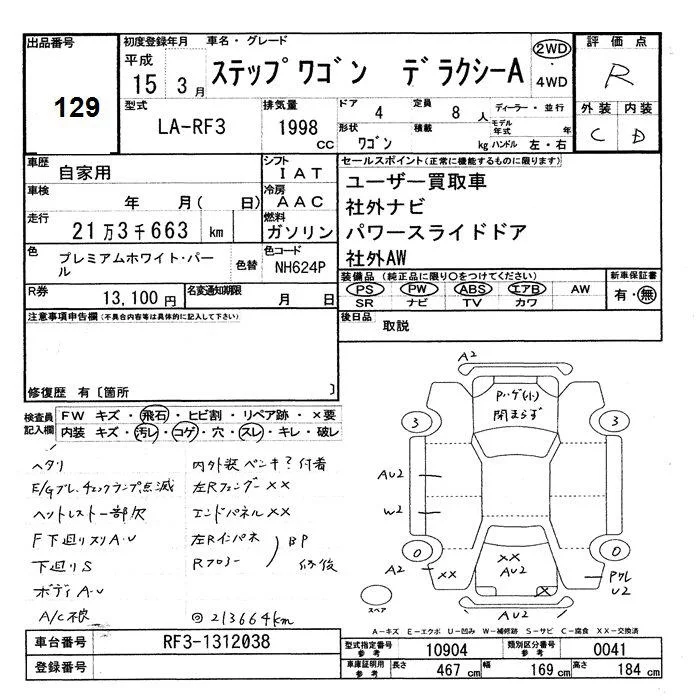 出品番号
129
初度登録年月
平成
15 3月
車名・グレード
ステップワゴン デラクシーA
2WD
・
4WD
評価点
R
外装 内装
C D
型式
LA-RF3
排気量
1998 cc
ドア 4
定員 8 人
ディーラー・並行
形状 ワゴン
積載 kg
モデル年式 年
ハンドル 左・右
車歴 自家用
シフト IAT
車検 年 月( 日)
冷房 AAC
走行 21万3千663 km
燃料 ガソリン
色 プレミアムホワイト・パール
色替
色コード NH624P
R券 13,100円
名変通知期限 月 日
セールスポイント(正常に機能するものに限ります)
ユーザー買取車
社外ナビ
パワースライドドア
社外AW
装備品(純正品に限り○をつけてください)
PS PW ABS エアB AW
SR ナビ TV カワ
新車保証書
有・無
後日品 取説
注意事項申告欄(不具合内容等は具体的に記入して下さい)
修復歴 有〔箇所 〕
検査員記入欄
FW キズ・飛石・ヒビ割・リペア跡・×要
内装 キズ・汚レ・コゲ・穴・スレ・キレ・破レ
ヘタリ
E/Gブレ、チェックランプ点滅
ヘッドレスト一部欠
F下廻リスリA・U
下廻りS
ボディA・U
A/C不良
内外装ペンキ?付着
左Rフェンダー××
エンドパネル××
左Rインパネ
Rフロアー
BP
修後
213664km
A2
Pハゲ(小)
閉まらず
3
3
AU2
W2
0
0
A2
××
××
AU2
×
PワレU2
AU2
スペア
A-キズ E-エクボ U-凹み W-補修跡 S-サビ C-腐食 XX-交換済
車台番号 RF3-1312038
登録番号
型式指定番号 参考 10904
類別区分番号 参考 0041
車庫証明用 参考 長さ 467 cm 幅 169 cm 高さ 184 cm